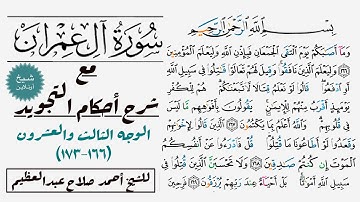 سورة آل عمران
مع
شرح أحكام التجويد
الوجه الثالث والعشرون
(١٦٦-١٧٣)
للشيخ أحمد صلاح عبدالعظيم
شيخ
أونلاين
بسم الله الرحمن الرحيم
وما أصبكم يوم التقى الجمعان فبإذن الله وليعلم المؤمنين
(١٦٦) وليعلم الذين نافقوا وقيل لهم تعالوا قتلوا في سبيل الله
أو ادفعوا قالوا لو نعلم قتالا لاتبعنكم هم للكفر
يومئذ أقرب منهم للإيمن يقولون بأفوههم ما ليس
في قلوبهم والله أعلم بما يكتمون (١٦٧) الذين قالوا لإخونهم
وقعدوا لو أطاعونا ما قتلوا قل فادرءوا عن أنفسكم
الموت إن كنتم صدقين (١٦٨) ولا تحسبن الذين قتلوا في
سبيل الله أموتا بل أحياء عند ربهم يرزقون (١٦٩) فرحين